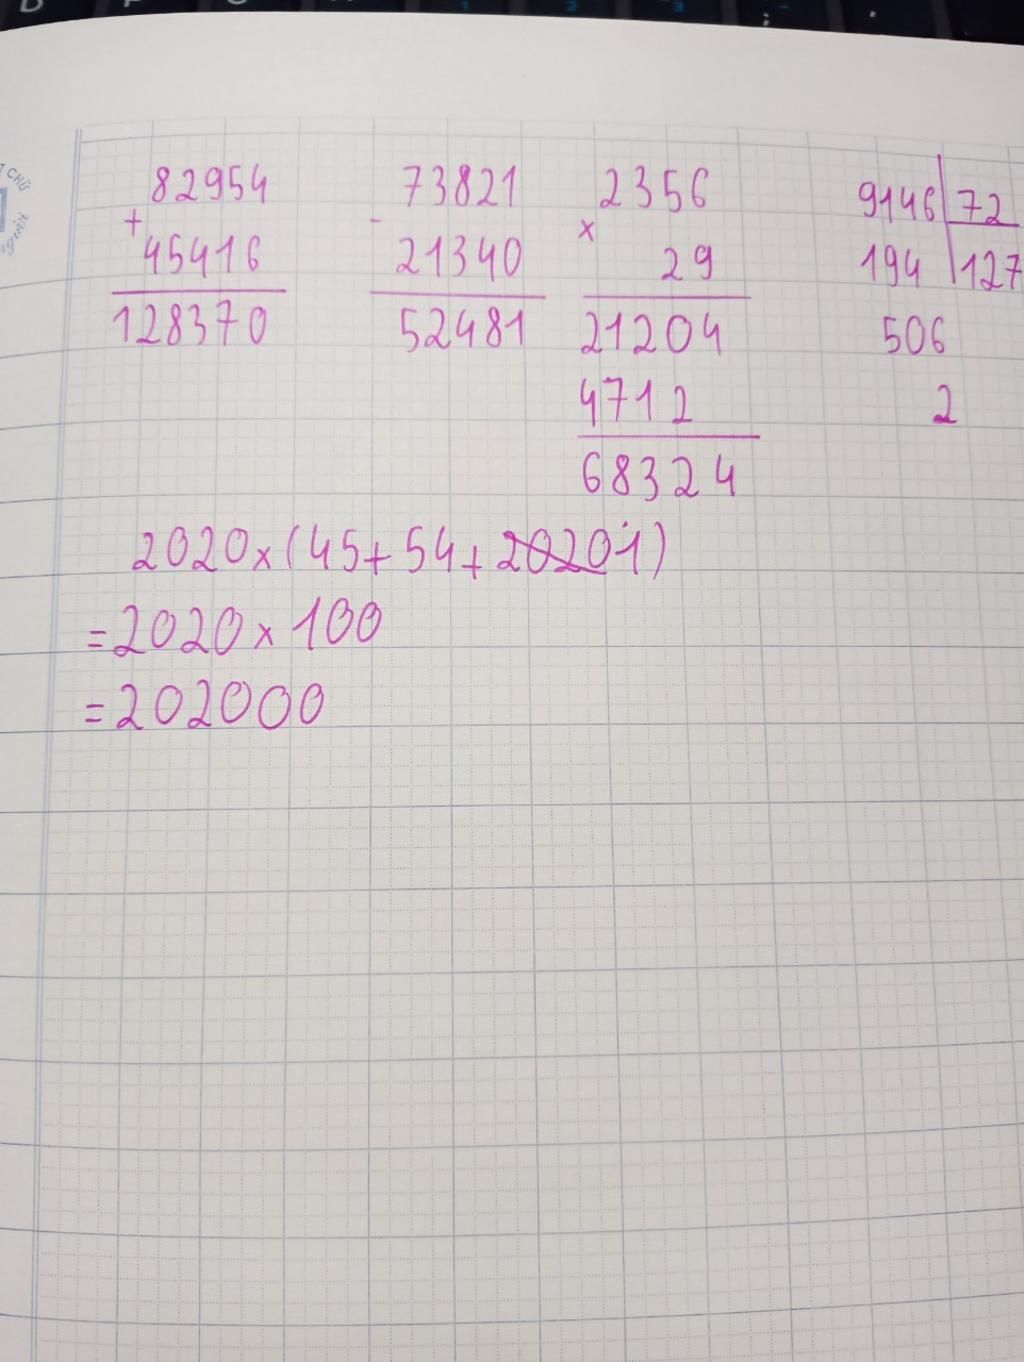 82954
+
45416
128370
73821
-
21340
52481
2356
x
29
21204
4712
68324
9146 72
194 127
506
2
2020 x (45 + 54 + 1)
= 2020 x 100
= 202000